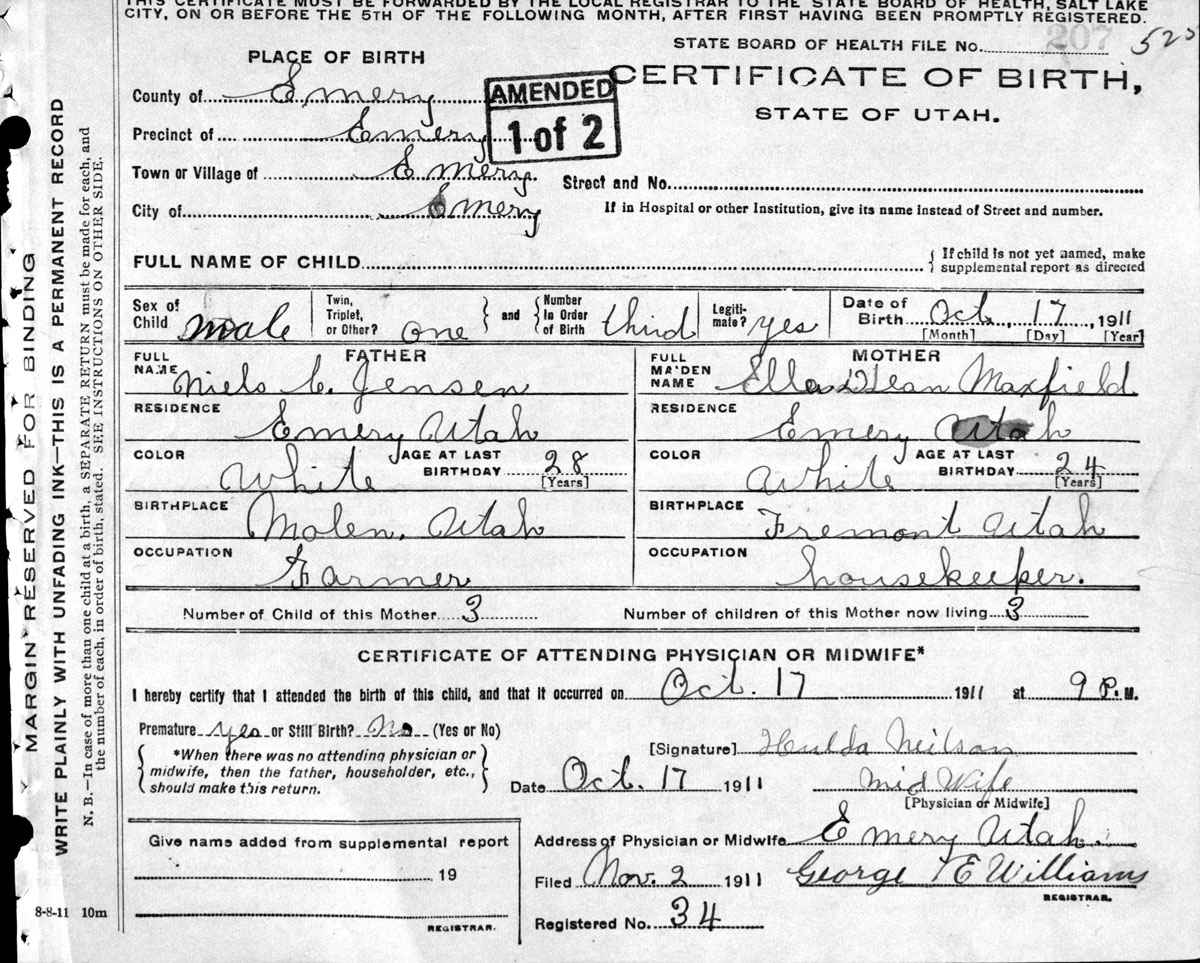 THIS CERTIFICATE MUST BE FORWARDED BY THE LOCAL REGISTRAR TO THE STATE BOARD OF HEALTH, SALT LAKE
CITY, ON OR BEFORE THE 5TH OF THE FOLLOWING MONTH, AFTER FIRST HAVING BEEN PROMPTLY REGISTERED.
STATE BOARD OF HEALTH FILE No. 207 525
PLACE OF BIRTH
CERTIFICATE OF BIRTH,
STATE OF UTAH.
AMENDED
1 of 2
County of Emery
Precinct of Emery
Town or Village of Emery.
Street and No.
City of Emery
If in Hospital or other Institution, give its name instead of Street and number.
FULL NAME OF CHILD
If child is not yet named, make
supplemental report as directed
Sex of Child male
Twin, Triplet, or Other? one
and
Number In Order of Birth third
Legitimate? yes
Date of Birth Oct, 17, 1911
[Month] [Day] [Year]
FATHER
FULL NAME Niels C. Jensen
MOTHER
FULL MAIDEN NAME Ella Dean Maxfield
RESIDENCE Emery Utah
RESIDENCE Emery Utah
COLOR White
AGE AT LAST BIRTHDAY 28
[Years]
COLOR White
AGE AT LAST BIRTHDAY 24
[Years]
BIRTHPLACE Molen, Utah
BIRTHPLACE Fremont Utah
OCCUPATION Farmer
OCCUPATION housekeeper.
Number of Child of this Mother 3
Number of children of this Mother now living 3
CERTIFICATE OF ATTENDING PHYSICIAN OR MIDWIFE*
I hereby certify that I attended the birth of this child, and that it occurred on Oct. 17 1911 at 9 P.M.
Premature yes or Still Birth? No (Yes or No)
*When there was no attending physician or
midwife, then the father, householder, etc.,
should make this return.
[Signature] Hulda Neilson
Date Oct. 17 1911
Mid Wife
[Physician or Midwife]
Give name added from supplemental report
19
REGISTRAR.
Address of Physician or Midwife Emery Utah.
Filed Nov. 2 1911 George E Williams
REGISTRAR.
Registered No. 34
8-8-11 10m
MARGIN RESERVED FOR BINDING
WRITE PLAINLY WITH UNFADING INK—THIS IS A PERMANENT RECORD
N. B.—In case of more than one child at a birth, a SEPARATE RETURN must be made for each, and
the number of each, in order of birth, stated. SEE INSTRUCTIONS ON OTHER SIDE.